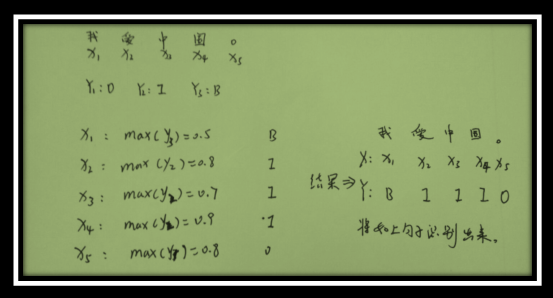 我 爱 中 国 。
X₁ X₂ X₃ X₄ X₅
Y₁:O Y₂:I Y₃:B
X₁: max(Y₃)=0.5 B
X₂: max(Y₂)=0.8 I
X₃: max(Y₂)=0.7 I
X₄: max(Y₂)=0.9 I
X₅: max(Y₁)=0.8 O
我 爱 中 国 。
X: X₁ X₂ X₃ X₄ X₅
结果⇒Y: B I I I O
将如上句子识别出来。